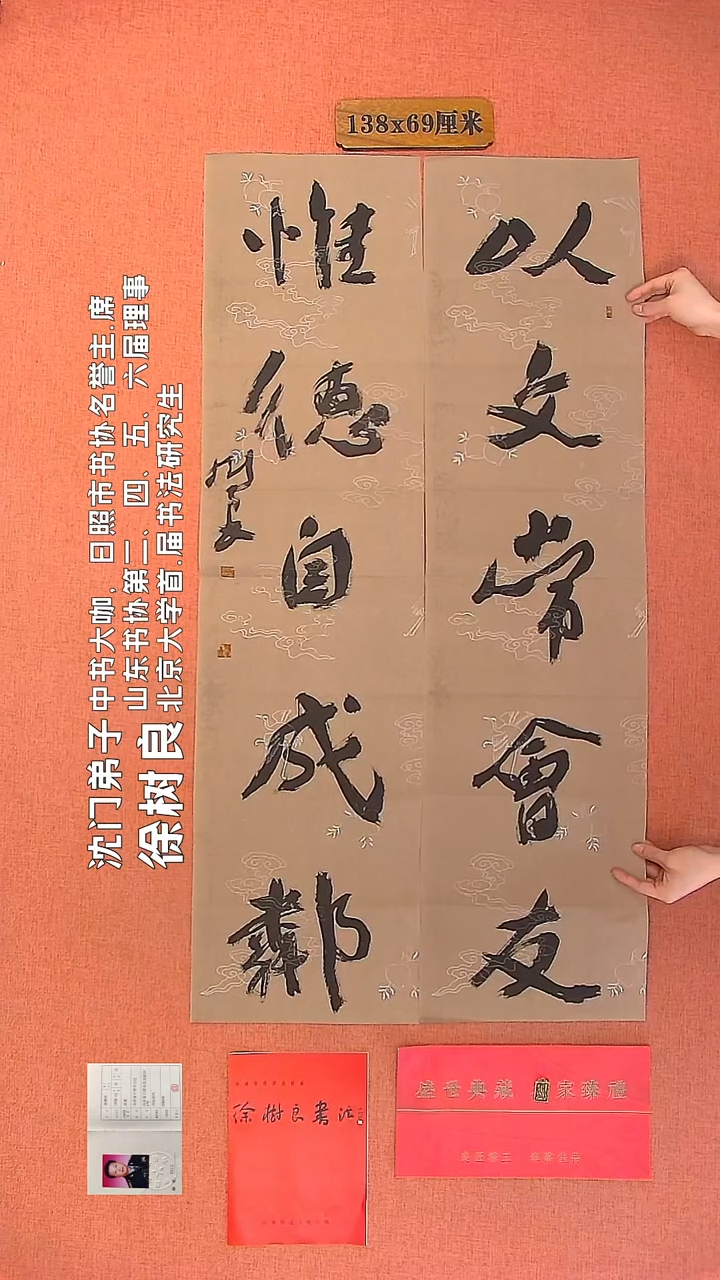 138x69厘米
以文常會友
惟德自成鄰
树良
沈门弟子 中书大咖，日照市书协名誉主.席
山东书协第二、四、五、六届理事
徐树良 北京大学首.届书法研究生
徐樹良書法
盛世典藏 家臻禮